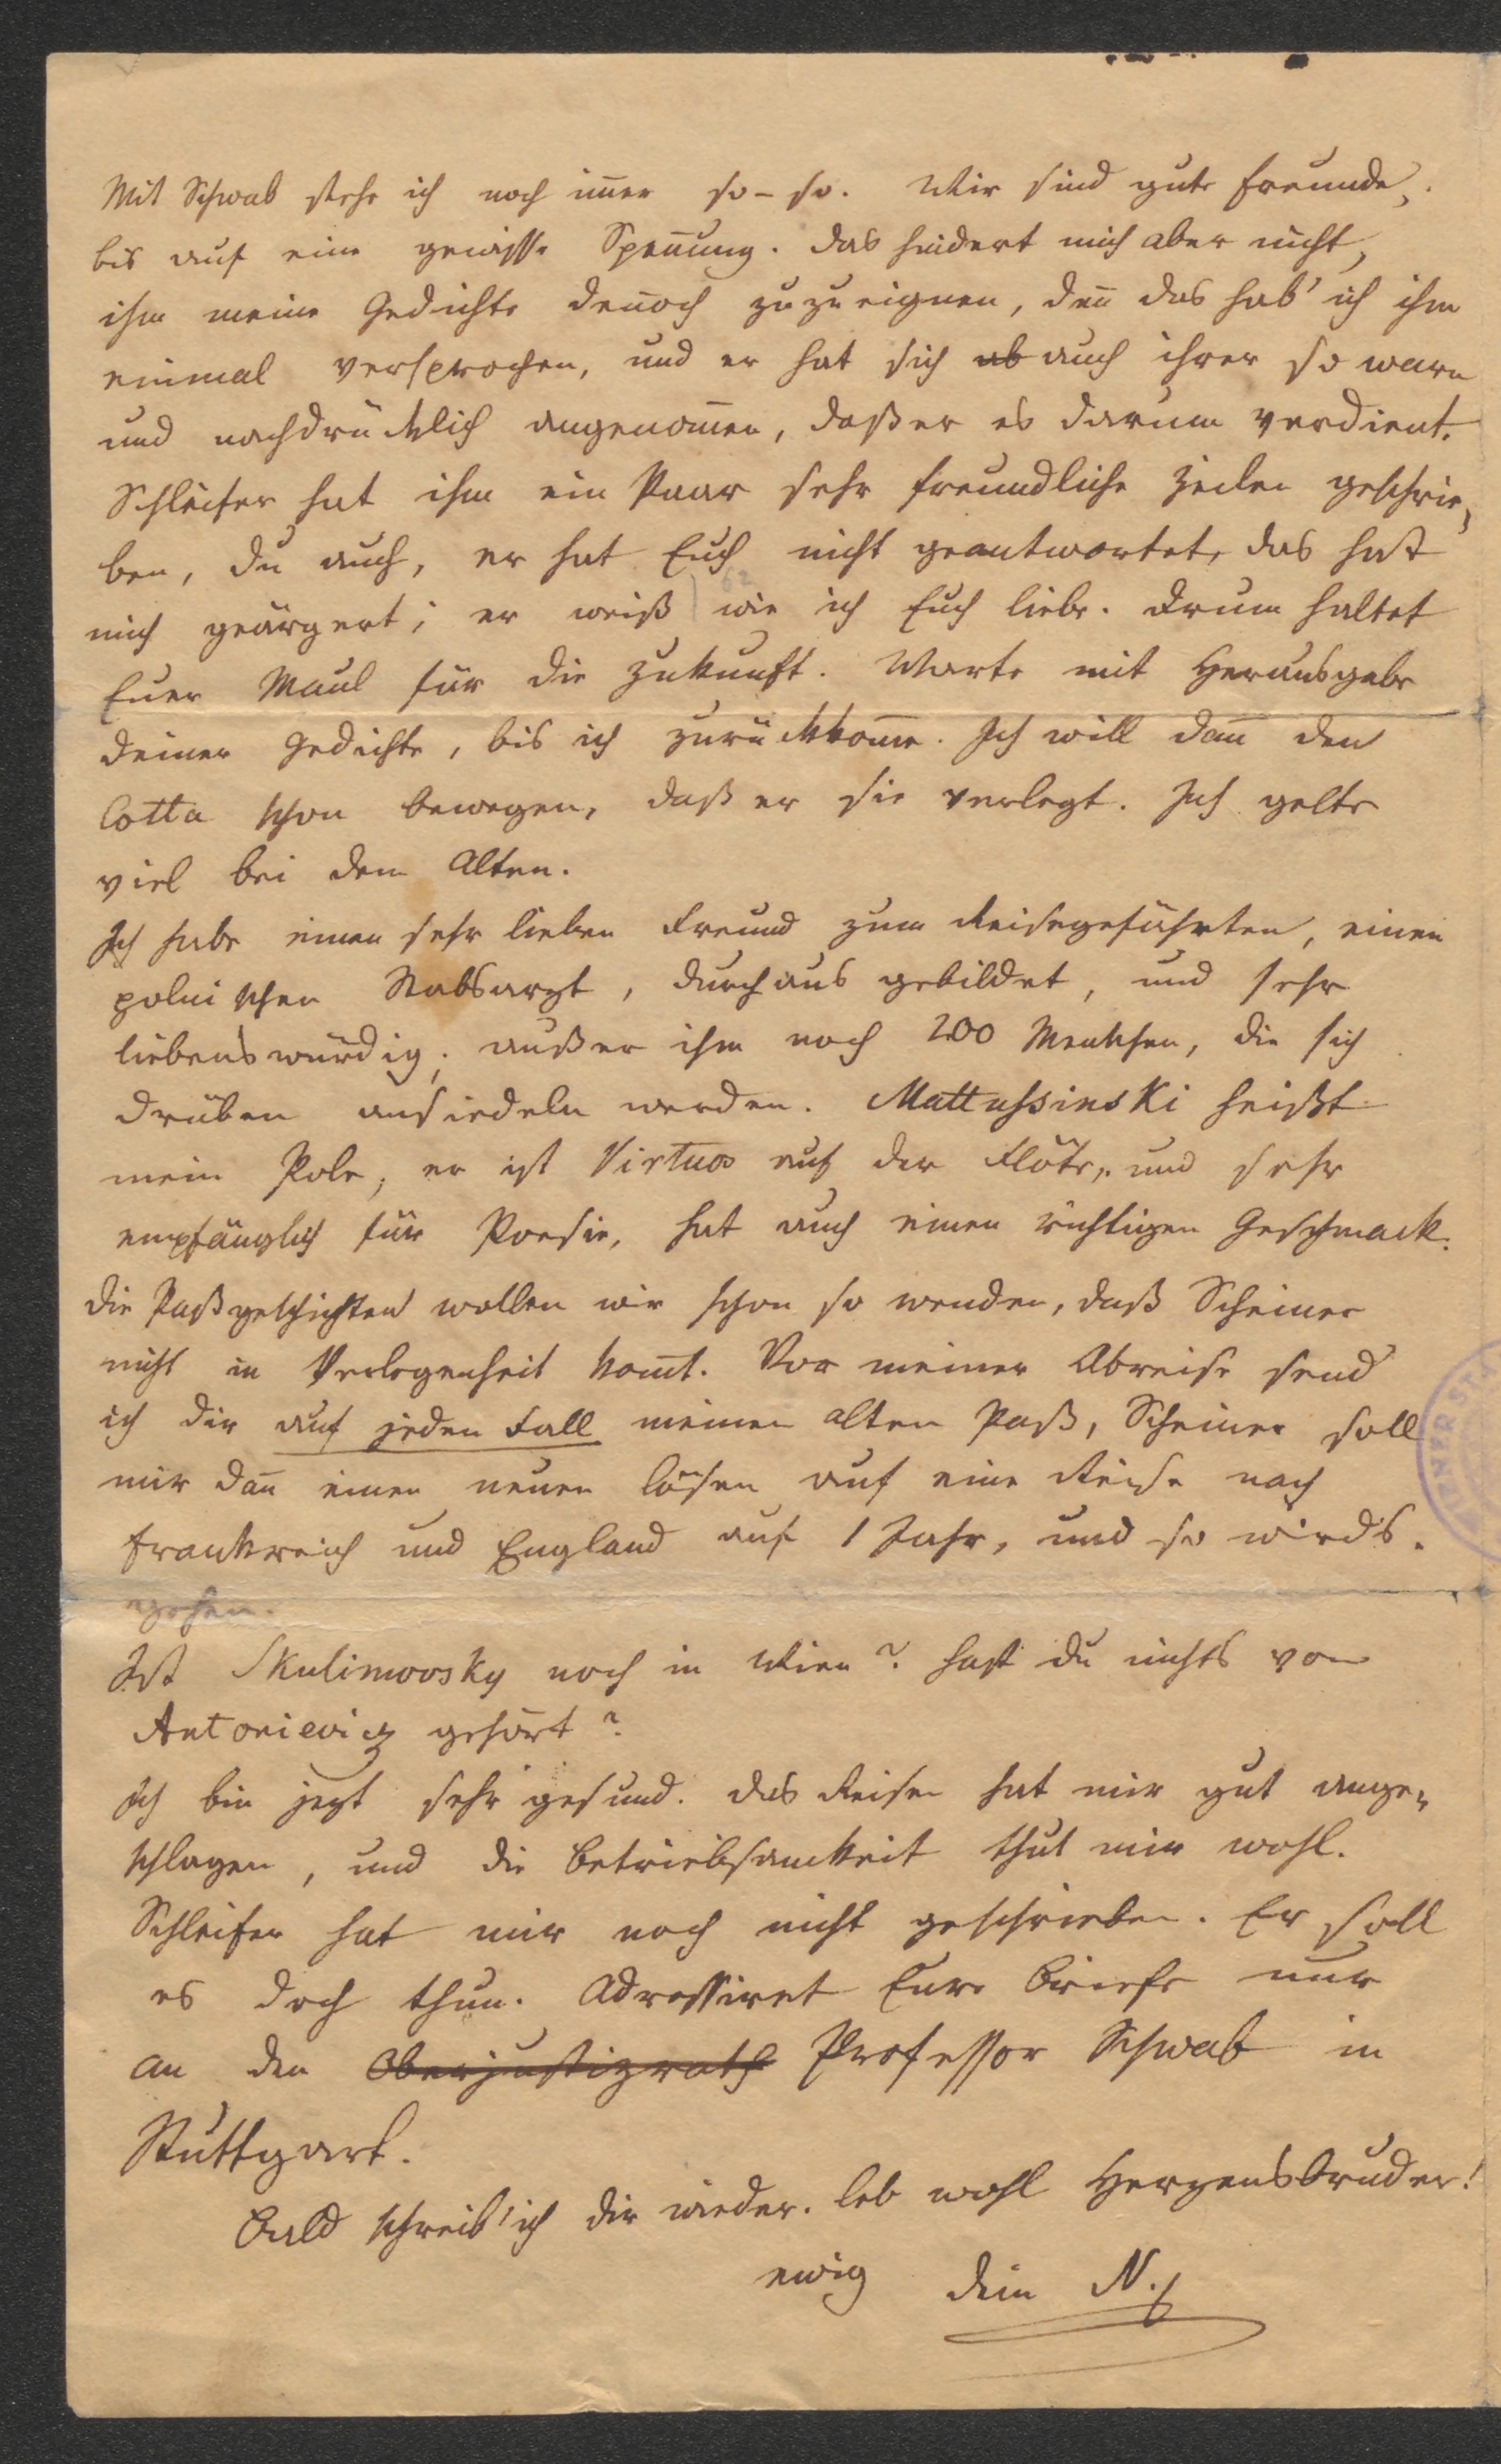 Mit Schwab stehe ich noch im̄er so-so. Wir sind gute Freunde,
bis auf eine gewisse Span̄ung. Das hindert mich aber nicht,
ihm meine Gedichte den̄och zuzueignen, den̄ das hab' ich ihm
einmal versprochen, und er hat sich ab auch ihrer so warm
und nachdrücklich angenom̄en, daß er es darum verdient.
Schleifer hat ihm ein Paar sehr freundliche Zeilen geschrie-
ben, du auch, er hat Euch nicht geantwortet, das hat
mich geärgert; er weiß wie ich Euch liebe. Drum haltet
Euer Maul für die Zukunft. Warte mit Herausgabe
deiner Gedichte, bis ich zurückkom̄e. Ich will dan̄ den
Cotta schon bewegen, daß er sie verlegt. Ich gelte
viel bei dem Alten.
Ich habe einen sehr lieben Freund zum Reisegefährten, einen
polnischen Stabsarzt, durchaus gebildet, und sehr
liebenswürdig; außer ihm noch 200 Menschen, die sich
drüben ansiedeln werden. Mattussinski heißt
mein Pole, er ist Virtuos auf der Flöte, und sehr
empfänglich für Poesie, hat auch einen richtigen Geschmack.
Die Paßgeschichten wollen wir schon so wenden, daß Scheiner
nicht in Verlegenheit kom̄t. Vor meiner Abreise send
ich dir auf jeden Fall meinen alten Paß, Scheiner soll
mir dan̄ einen neuen lösen auf eine Reise nach
Frankreich und England auf 1 Jahr, und so wird's
gehen.
Ist Skulimowsky noch in Wien? Hast du nichts von
Antoniewicz gehört?
Ich bin jezt sehr gesund. Das Reisen hat mir gut ange-
schlagen, und die Betriebsamkeit thut mir wohl.
Schleifer hat mir noch nicht geschrieben. Er soll
es doch thun. Adressiret Eure Briefe nur
an den Oberjustizrath Professor Schwab in
Stuttgart.
Bald schreib' ich dir wieder. Leb wohl Herzensbruder!
ewig dein N.